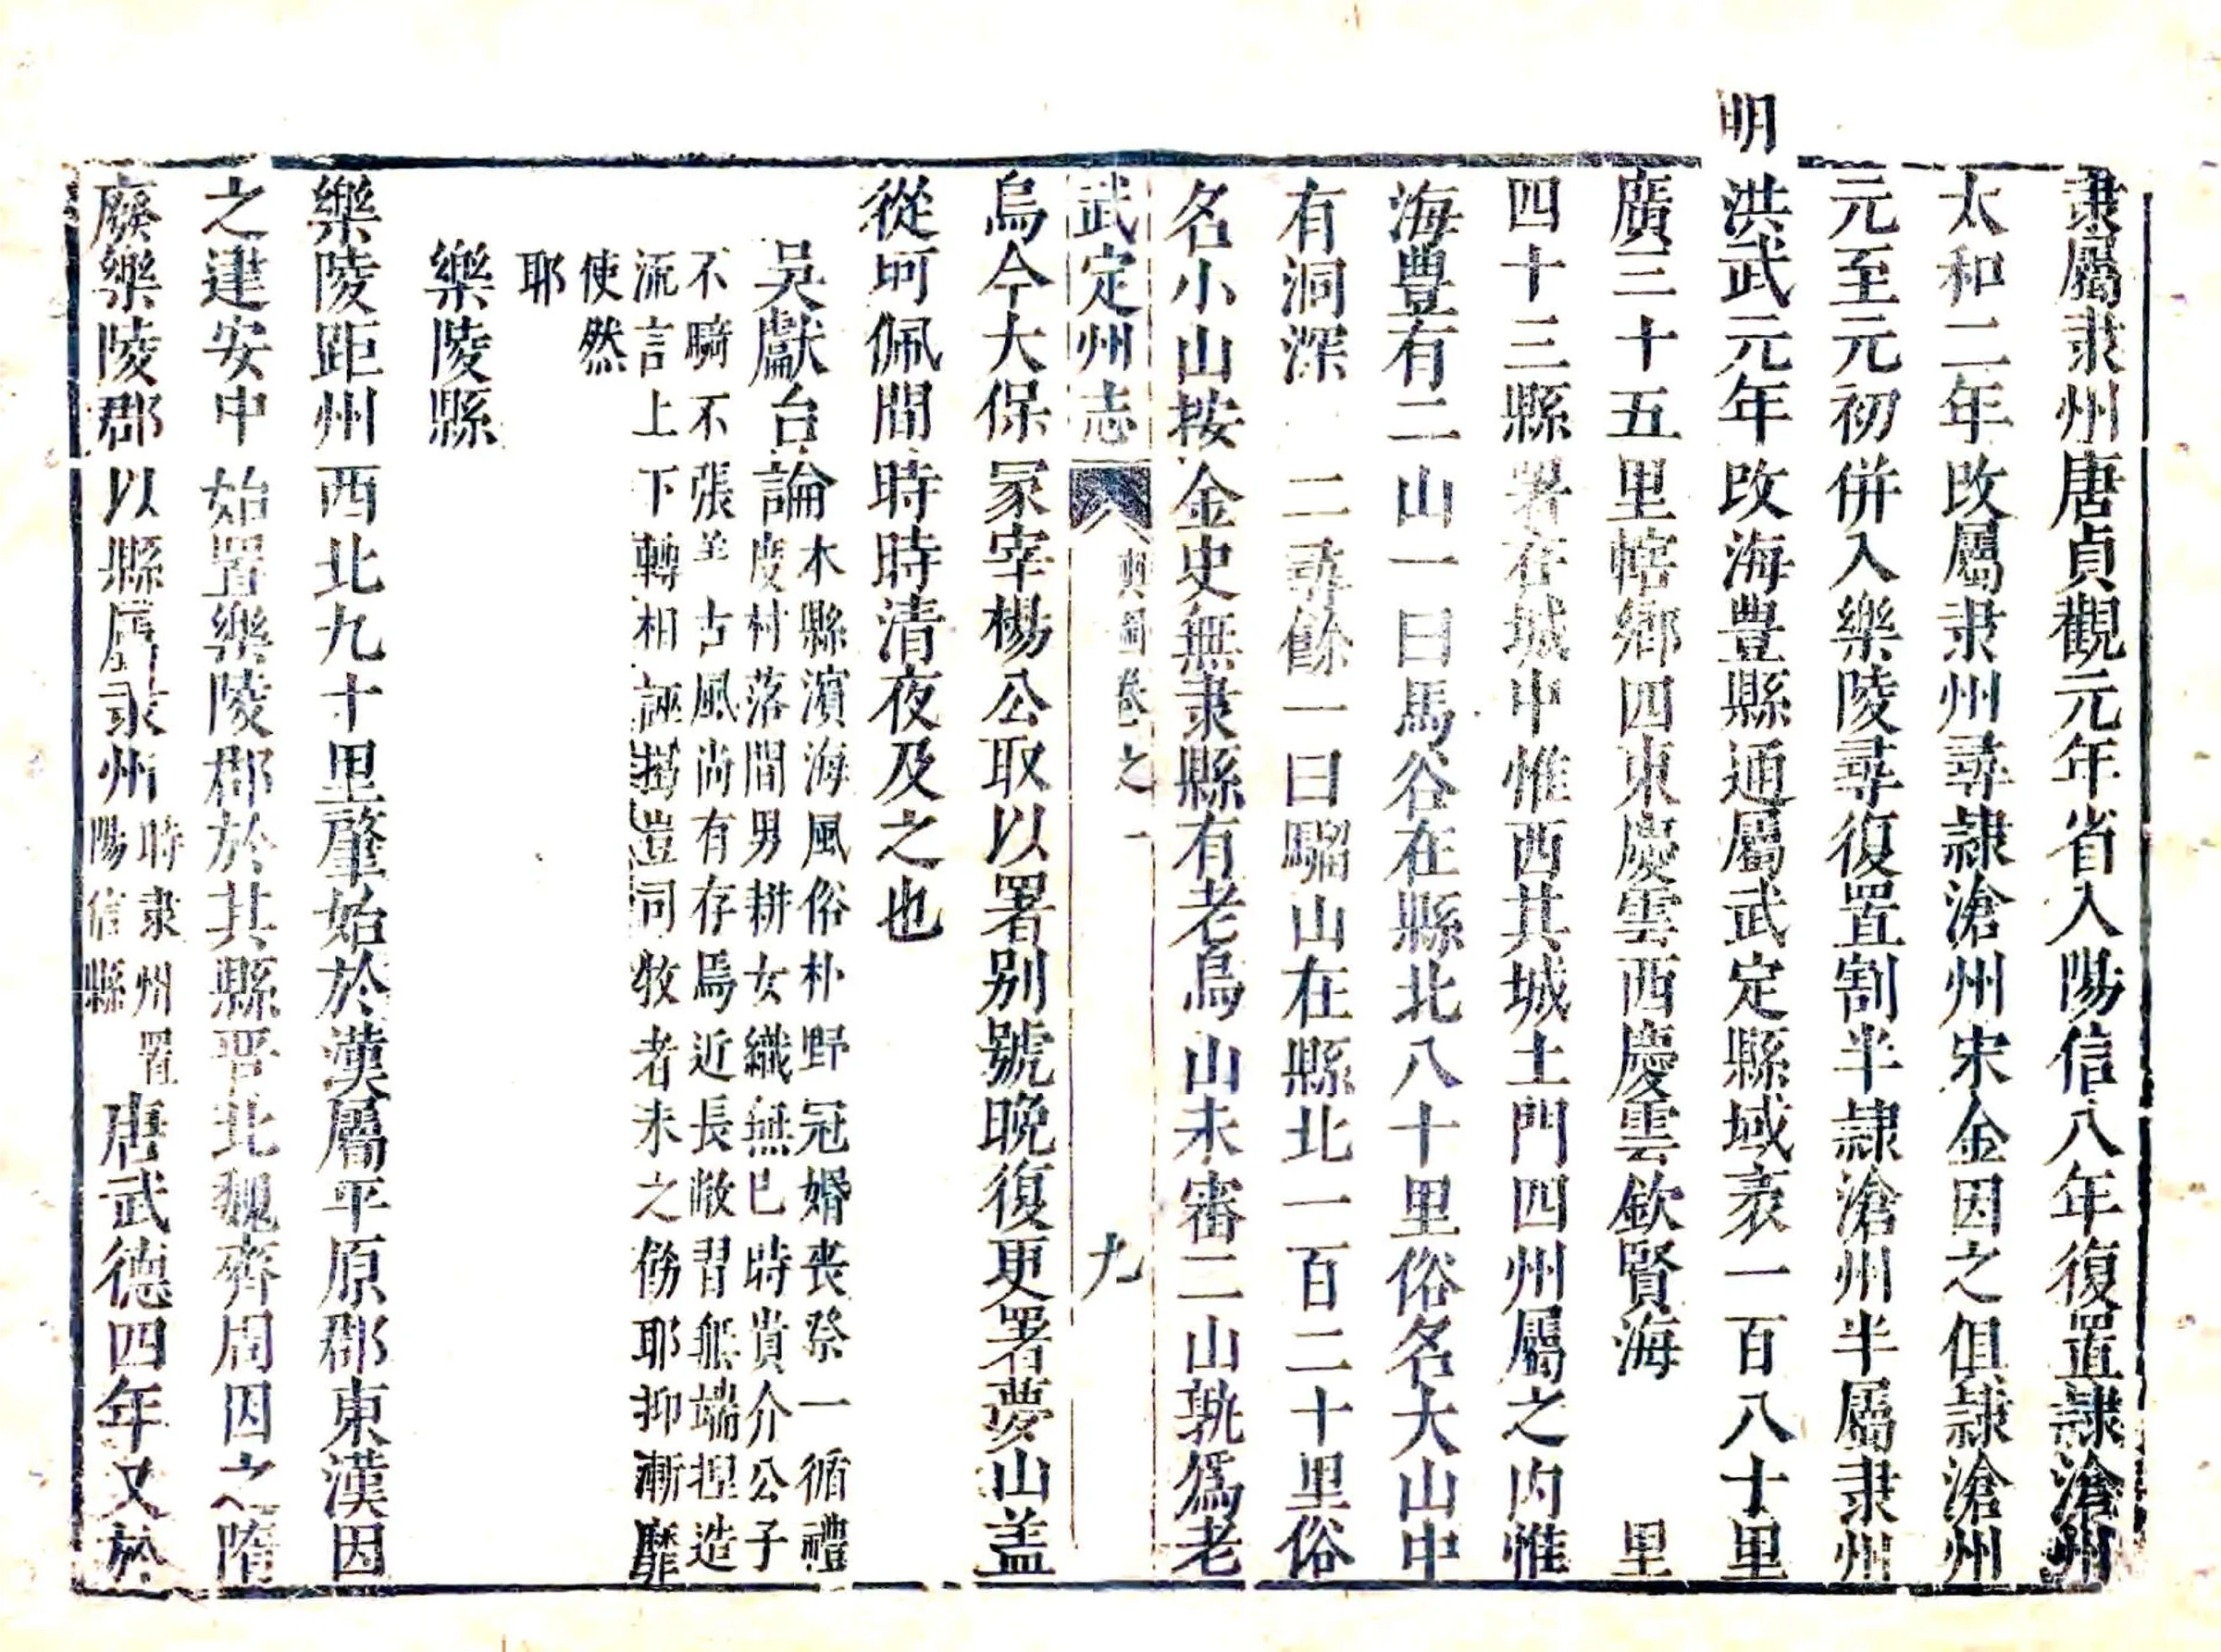 隶屬隶州唐貞觀元年省入陽信八年復置隷滄州
太和二年改屬隶州尋隷滄州宋金因之俱隷滄州
元至元初併入樂陵尋復置割半隷滄州半屬隶州
明洪武元年改海豊縣通屬武定縣域袤一百八十里
廣三十五里轄鄉四東慶雲西慶雲欽賢海 里
四十三縣署在城中惟西其城土門四州屬之内惟
海豊有二山一曰馬谷在縣北八十里俗名大山中
有洞深 二尋餘一曰騮山在縣北一百二十里俗
名小山按金史無隶縣有老烏山未審二山孰爲老
武定州志 輿圖卷之一 九
烏今大保冢宰楊公取以署别號晩復更署夢山盖
從坷佩間時時清夜及之也
吳獻台論
木縣濱海風俗朴野冠婚丧祭一循禮
度村落間男耕女織無已時貴介公子
不騎不張羊古風尚有存焉近長敝習無端揑造
流言上下轉相誣搆豈司牧者未之飭耶抑漸靡
使然
耶
樂陵縣
樂陵距州西北九十里肇始於漢屬平原郡東漢因
之建安中始置樂陵郡於其縣晋北魏齊周因之隋
廢樂陵郡以縣屬隶州
時隶州置
陽信縣
唐武德四年又於